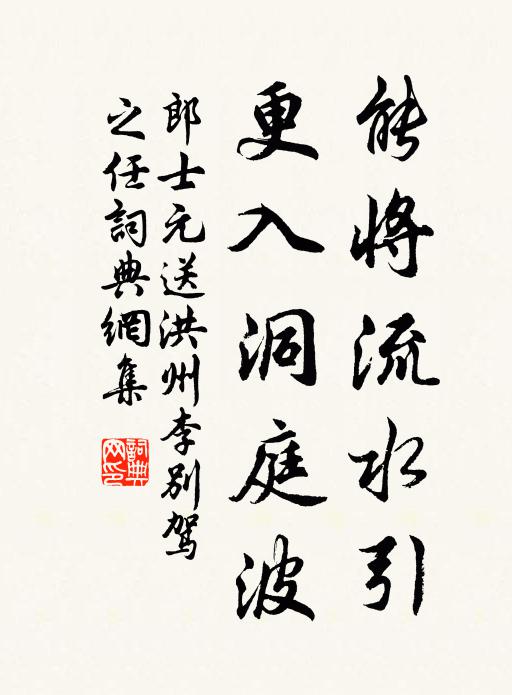 能将流水引
更入洞庭波
郎士元送洪州李别駕
之任詞典網集
詞典
网印